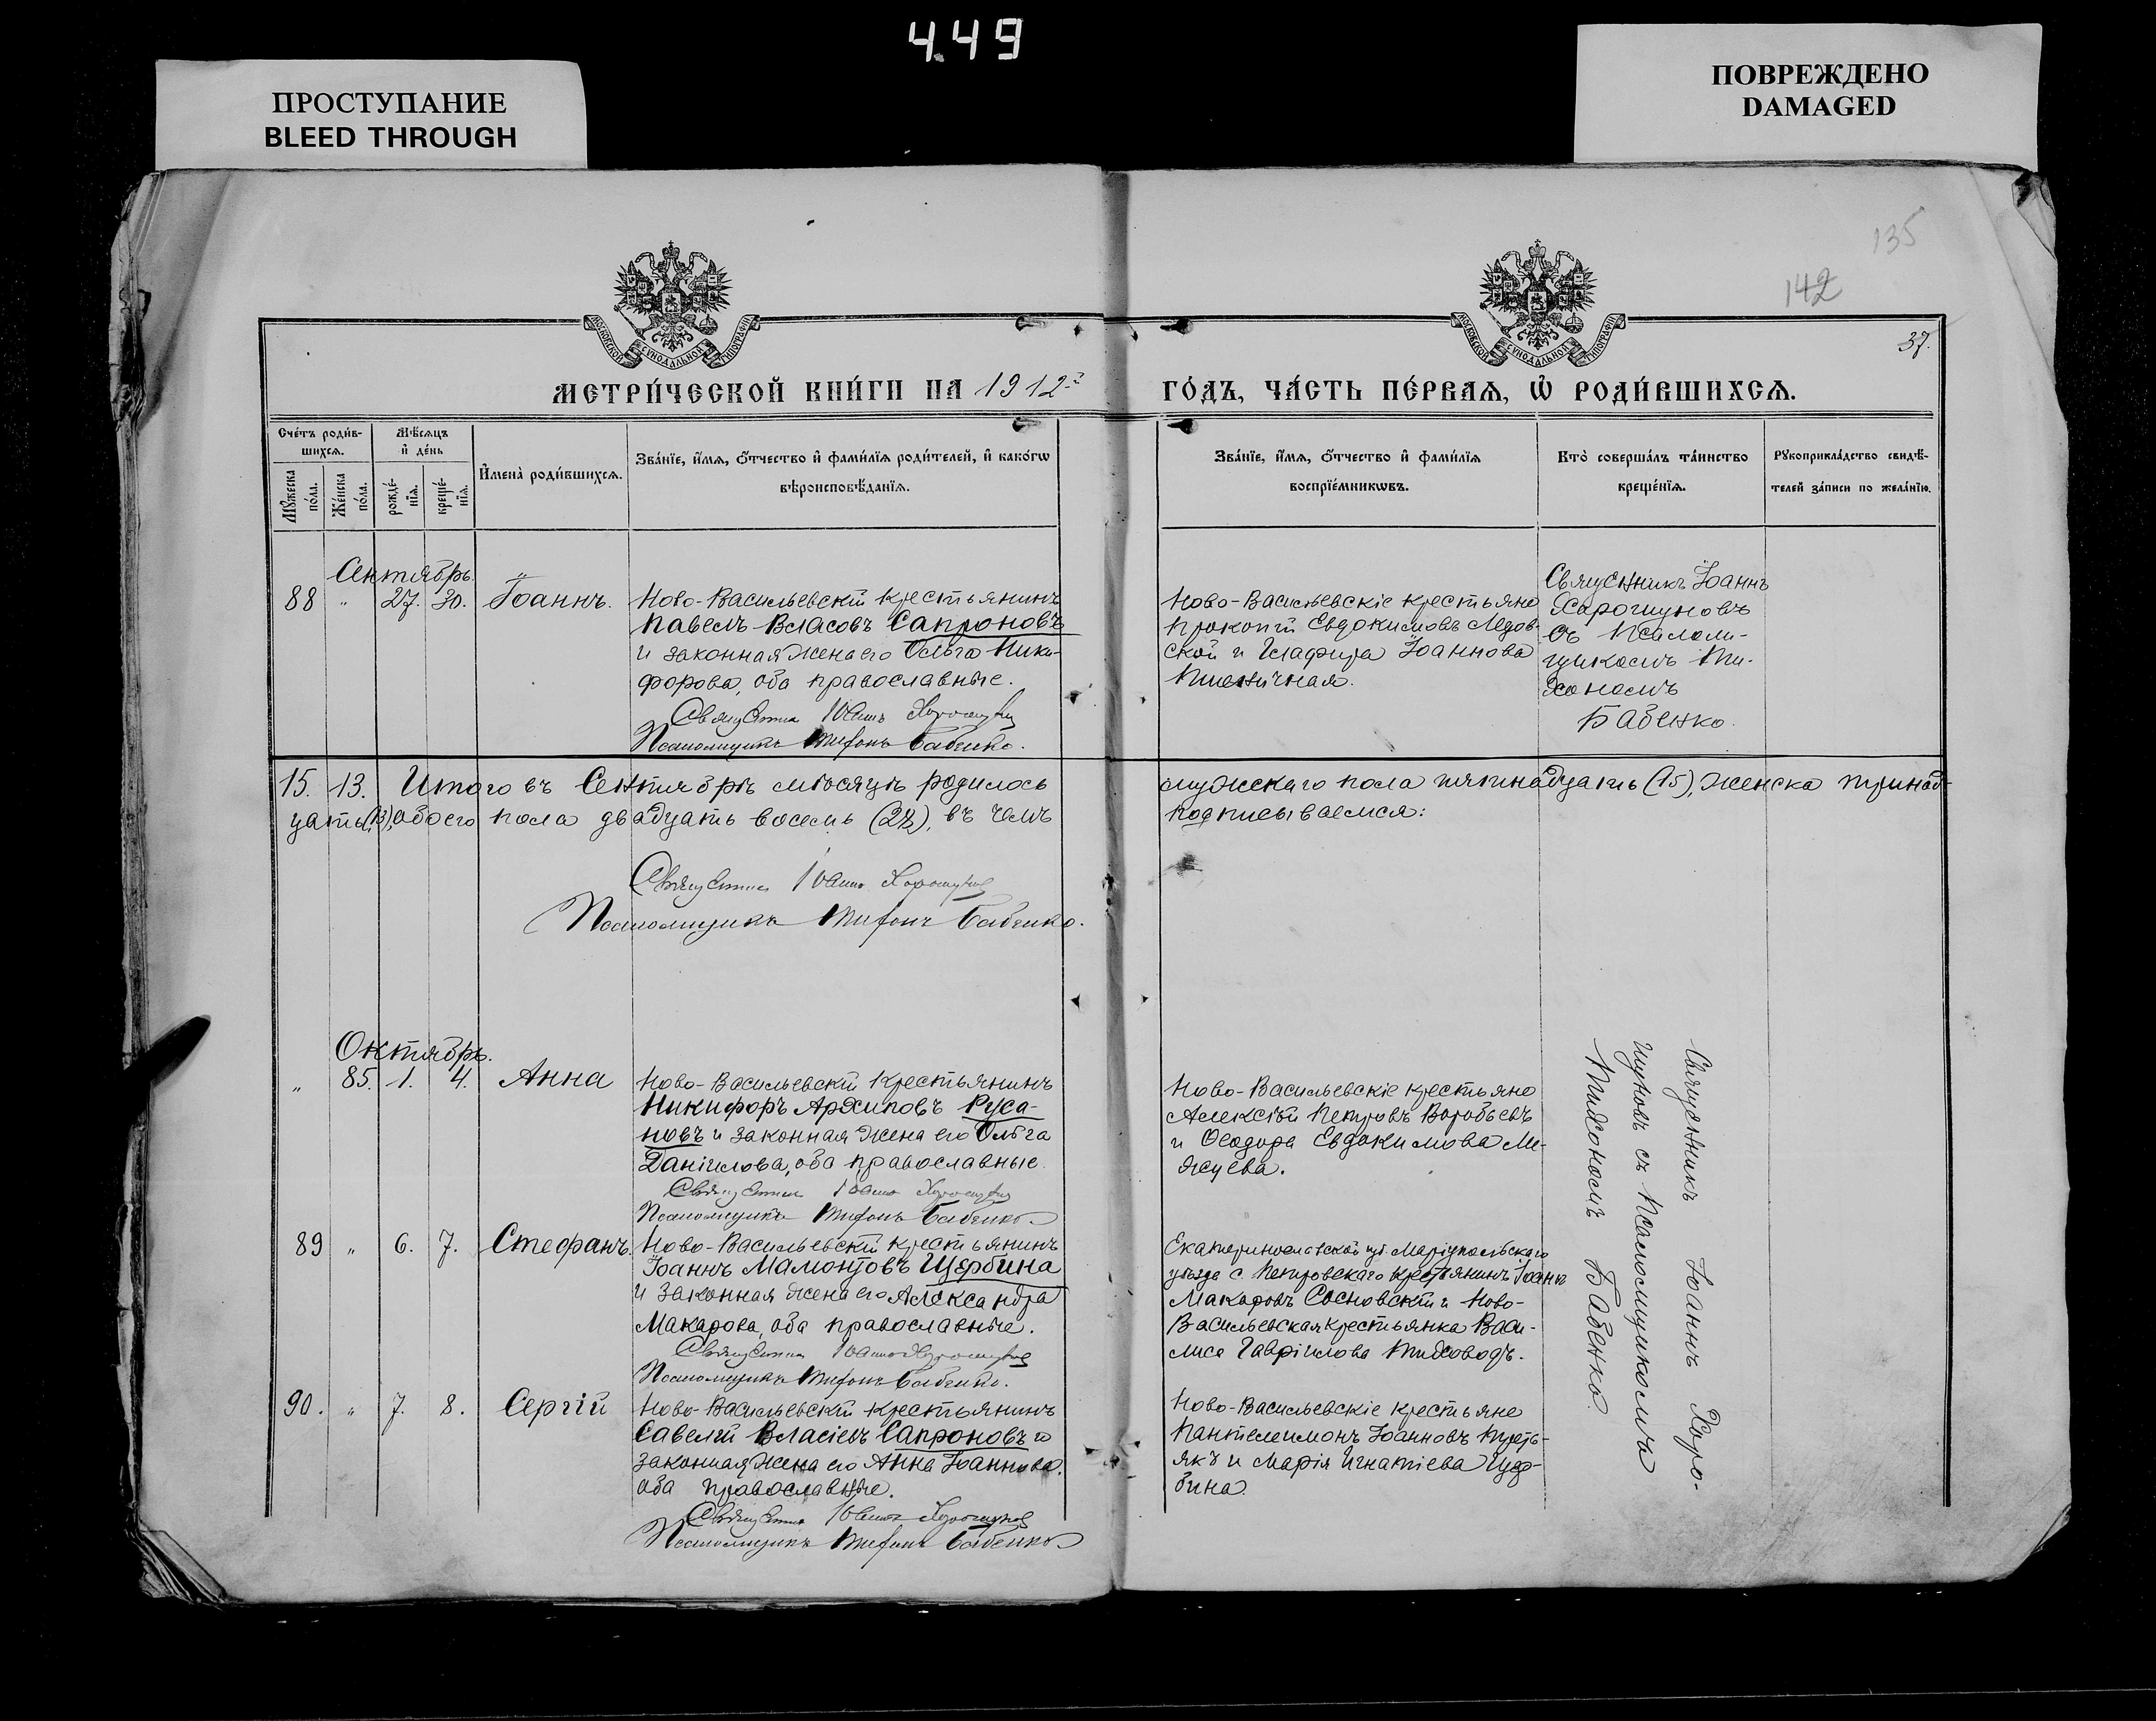 4.49
ПРОСТУПАНИЕ
BLEED THROUGH
ПОВРЕЖДЕНО
DAMAGED
135
142
37.
МОСКОВСКОЙ СѴНОДАЛЬНОЙ ТИПОГРАФІИ
МОСКОВСКОЙ СѴНОДАЛЬНОЙ ТИПОГРАФІИ
МЕТРИ́ЧЕСКОЙ КНИ́ГИ НА 1912й ГО́ДЪ, ЧА́СТЬ ПЕ́РВАѦ, Ѡ҆ РОДИ́ВШИХСѦ.
Сче́тъ роди́в-
шихсѧ.
Мѣ́сѧцъ
и҆ де́нь
Мꙋ́жеска
по́ла.
Же́нска
по́ла.
рожде́-
нїѧ.
креще́-
нїѧ.
И҆мена̀ роди́вшихсѧ.
Зва́нїе, и҆́мѧ, ѻ҆́тчество и҆ фами́лїѧ роди́телей, и҆ како́гѡ
вѣроисповѣ́данїѧ.
Зва́нїе, и҆́мѧ, ѻ҆́тчество и҆ фами́лїѧ
воспрїе́мникѡвъ.
Кто̀ соверша́лъ та́инство
креще́нїѧ.
Рꙋкоприкла́дство свидѣ́-
телей за́писи по жела́нїю.
Сентябрь.
88 " 27. 30. Іоаннъ.
Ново-Васильевскій крестьянинъ
Павелъ Власовъ Сапроновъ
и законная жена его Ольга Ники-
форова, оба православные.
Священникъ Іоаннъ Хорошуновъ
Псаломщикъ Тихонъ Бабенко.
Ново-Васильевскіе крестьяне
Прокопій Евдокимовъ Медов-
ской и Глафира Іоаннова
Пшеничная.
Священникъ Іоаннъ
Харошуновъ
съ Псалом-
щикомъ Ти-
хономъ
Бабенко.
15. 13. Итого въ Сентябрѣ мѣсяцѣ родилось мужскаго пола пятнадцать (15), женска тринад-
цать (13), обоего пола двадцать восемь (28), въ чемъ подписываемся:
Священникъ Іоаннъ Хорошуновъ
Псаломщикъ Тихонъ Бабенко.
Октябрь.
" 85. 1. 4. Анна
Ново-Васильевскій крестьянинъ
Никифоръ Архиповъ Руса-
новъ и законная жена его Ольга
Даніилова, оба православные.
Священникъ Іоаннъ Хорошуновъ
Псаломщикъ Тихонъ Бабенко.
Ново-Васильевскіе крестьяне
Алексѣй Петровъ Воробьевъ
и Ѳеодора Евдокимова Ме-
жуева.
89 " 6. 7. Стефанъ.
Ново-Васильевскій крестьянинъ
Іоаннъ Мамонтовъ Щербина
и законная жена его Александра
Макарова, оба православные.
Священникъ Іоаннъ Хорошуновъ
Псаломщикъ Тихонъ Бабенко.
Екатеринославской губ. Маріупольскаго
уѣзда с. Петровскаго крестьянинъ Іоаннъ
Макаровъ Сосновскій и Ново-
Васильевская крестьянка Васи-
лиса Гавріилова Тиховодъ.
90. " 7. 8. Сергій
Ново-Васильевскій крестьянинъ
Савелій Власіевъ Сапроновъ и
законная жена его Анна Іоаннова,
оба православные.
Священникъ Іоаннъ Хорошуновъ
Псаломщикъ Тихонъ Бабенко.
Ново-Васильевскіе крестьяне
Пантелеимонъ Іоанновъ
и Марія Игнатіева Щер-
бина.
Священникъ Іоаннъ Хоро-
шуновъ съ Псаломщикомъ
Тихономъ Бабенко.